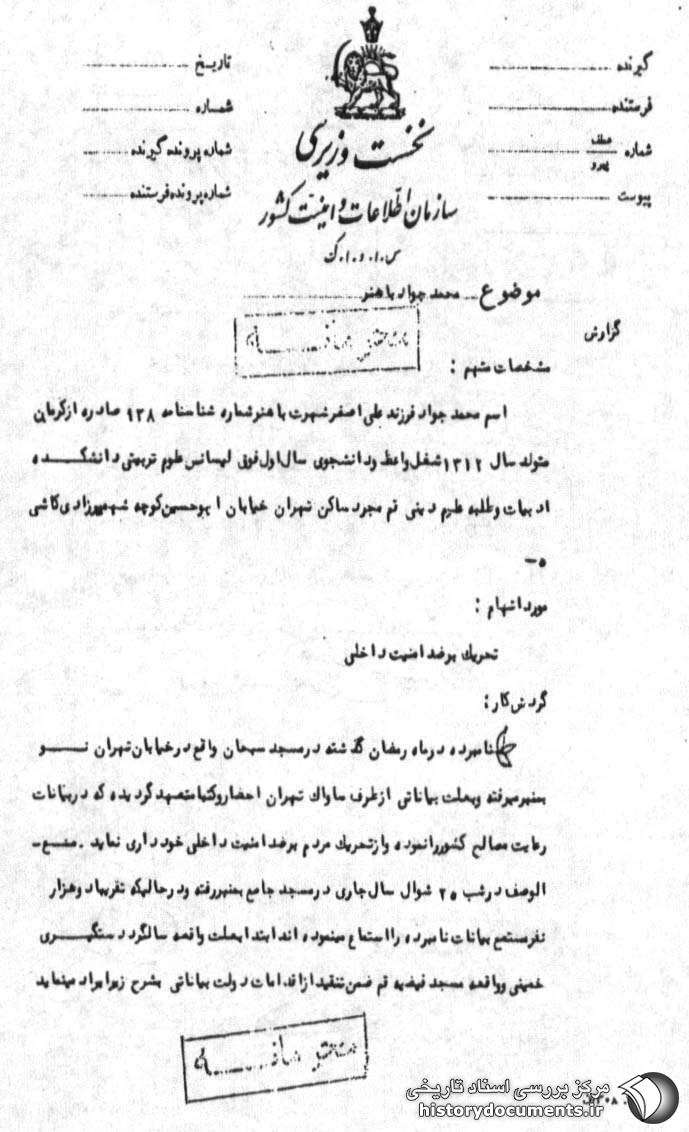 گیرنده
فرستنده
شماره عطف پیرو
پیوست
نخست وزیری
سازمان اطلاعات و امنیت کشور
س.ا.و.ا.ک
تاریخ
شماره
شماره پرونده گیرنده
شماره پرونده فرستنده
موضوع محمد جواد باهنر
محرمانه
گزارش
مشخصات متهم :
اسم محمد جواد فرزند علی اصغر شهرت باهنر شماره شناسنامه ۹۳۸ صادره از کرمان
متولد سال ۱۳۱۲ شغل واعظ و دانشجوی سال اول فوق لیسانس علوم تربیتی دانشکده
ادبیات و طلبه علوم دینی قم مجرد ساکن تهران خیابان ابوحسین کوچه شهمیرزادی کاشی
۵-
مورد اتهام :
تحریک برضد امنیت داخلی
گردش کار :
نامبرده در ماه رمضان گذشته در مسجد سبحان واقع در خیابان تهران نو
بمنبر میرفته و بعلت بیاناتی از طرف ساواک تهران احضار و کتبا متعهد گردیده که در بیانات
رعایت مصالح کشور را نموده و از تحریک مردم برضد امنیت داخلی خود داری نماید . مع-
الوصف در شب ۲۵ شوال سال جاری در مسجد جامع بمنبر رفته و در حالیکه تقریبا دو هزار
نفر مستمع بیانات نامبرده را استماع مینموده اند ابتدا بعلت واقعه سالگرد دستگیری
خمینی و واقعه مسجد فیضیه قم ضمن تنقید از اقدامات دولت بیاناتی بشرح زیر ایراد مینماید
محرمانه
مرکز بررسی اسناد تاریخی
historydocuments.ir